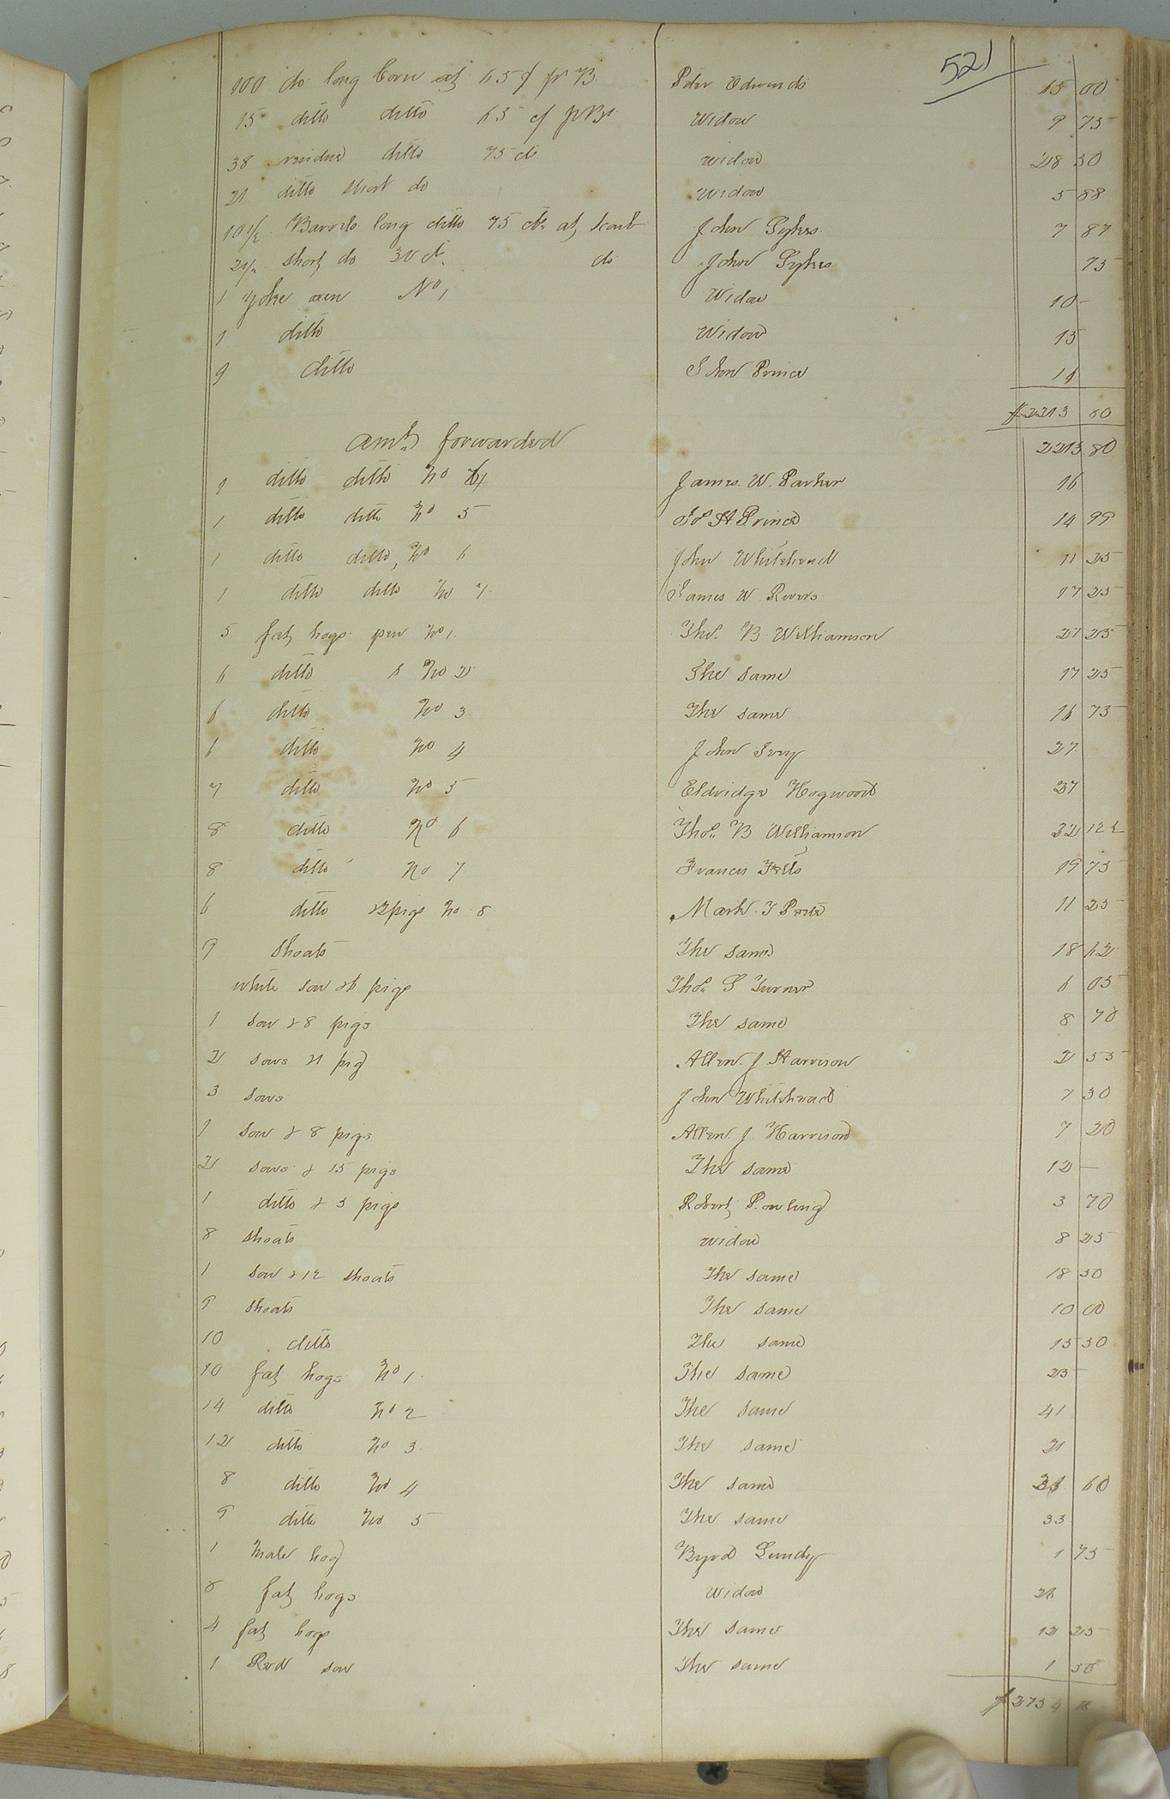 521
100 do long Corn at 65 ₵ pr B Peter Edwards 65 00
15 ditto ditto 65 ₵ pr Br Widow 9 75
38 residue ditto 75 cts widow 28 50
21 ditto short do Widow 5 88
10 1/2 Barrels long ditto 75 cts at John Sykes 7 87
2 1/2 short do 30 ct. do John Sykes 75
1 yoke oxen No 1 Widow 10 -
1 ditto Widow 15
9 ditto John Prince 14
$2213 80
amt. forwarded 2213 80
1 ditto ditto No James W. Parker 16
1 ditto ditto No 5 H Prince 14 99
1 ditto ditto, No 6 John Whitehead 11 25
1 ditto ditto No 7 James W Rivers 17 25
5 fat hogs pen No 1 Tho. B Williamson 27 25
6 ditto No 2 The same 17 25
6 ditto No 3 The same 16 75
6 ditto No 4 John Ivey 27
7 ditto No 5 Eldridge Hogwood 37
8 ditto No 6 Thos. B Williamson 32 12 1/2
8 ditto No 7 Francis Felts 19 75
6 ditto & 2 pigs No 8 Mark T 11 25
9 Shoats The same 18 62
white sow & 6 pigs Thos. S Turner 6 05
1 sow & 8 pigs The same 8 70
2 sows & 1 pig Allen J Harrison 2 55
3 sows John Whitehead 7 30
1 sow & 8 pigs Allen J Harrison 7 20
2 sows & 15 pigs The same 12 -
1 ditto & 5 pigs Robert 3 70
8 shoats widow 8 25
1 sow & 12 shoats The same 18 50
9 shoats The same 10 00
10 ditto The same 15 50
10 fat hogs No 1 The same 25
14 ditto No 2 The same 41
12 ditto No 3 The same 21
8 ditto No 4 The same 60
9 ditto No 5 The same 33
1 Male hog Byrd Gundy 1 75
8 fat hogs widow 26
4 fat hogs The same 12 25
1 Red sow The same 1 50
$3754